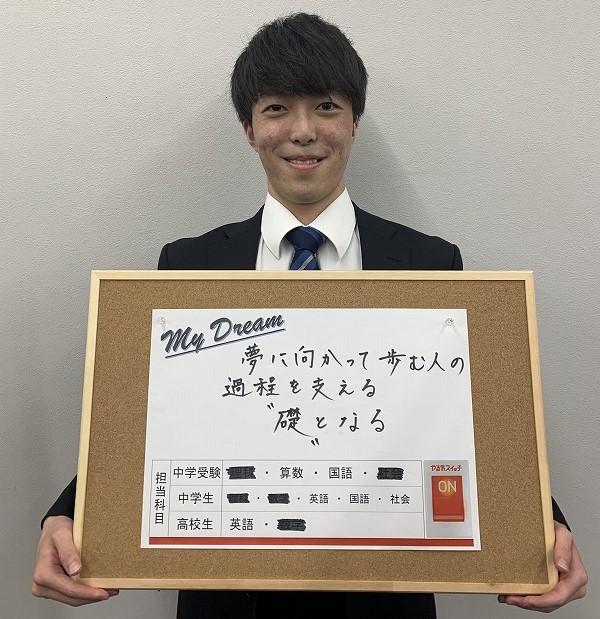 My Dream
夢に向かって歩む人の
過程を支える
〝礎となる〟
担当科目
中学受験 ・ 算数 ・ 国語 ・
中学生 ・ ・ 英語 ・ 国語 ・ 社会
高校生 英語 ・
やる気スイッチ
ON